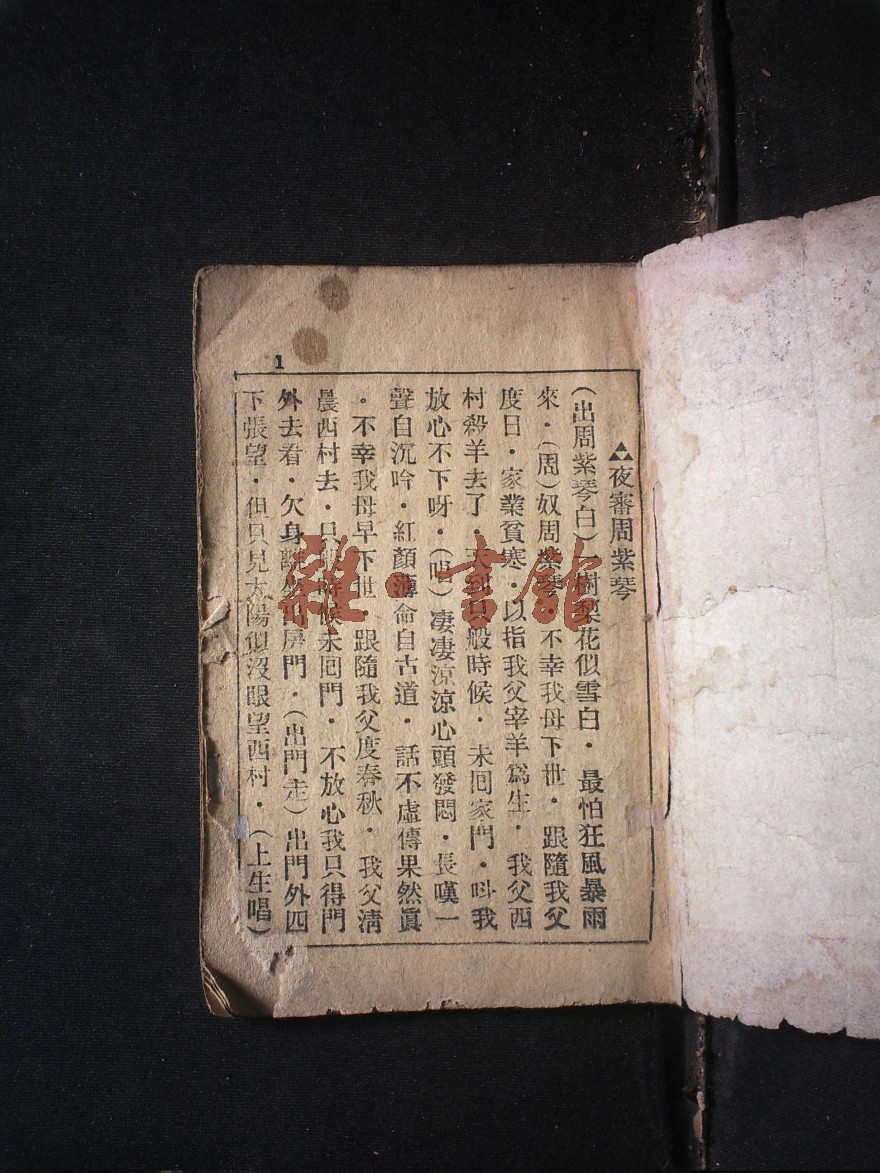 ▲夜審周紫琴
(出周紫琴白)一樹梨花似雪白·最怕狂風暴雨
來·(周)奴周紫琴·不幸我母下世·跟隨我父
度日·家業貧寒·以指我父宰羊爲生·我父西
村殺羊去了·天到只般時候·未回家門·呌我
放心不下呀·(唱)凄凄涼涼心頭發悶·長嘆一
聲自沉吟·紅顏薄命自古道·話不虛傳果然眞
·不幸我母早下世·跟隨我父度春秋·我父清
晨西村去·只時候未回門·不放心我只得門
外去看·欠身離坐出屏門·(出門走)出門外四
下張望·但只見太陽似沒眼望西村·(上生唱)
1
雜·書館